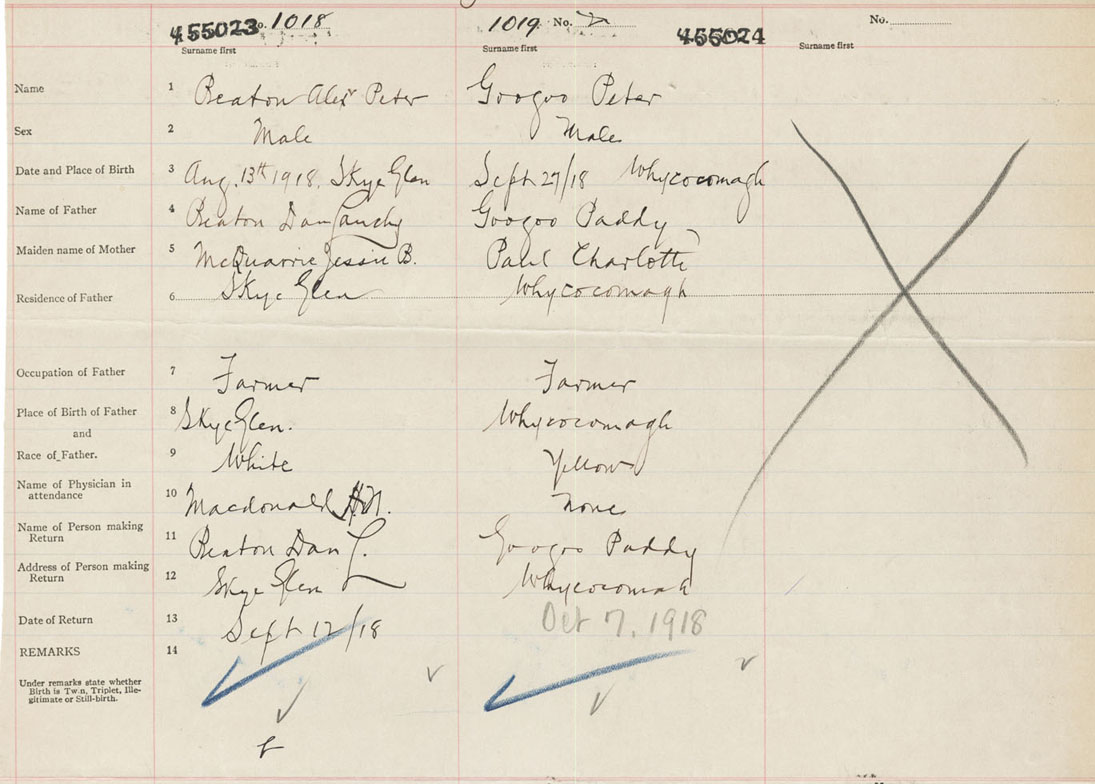 455023 No. 1018 1019 No. 2 455024 No.
Surname first Surname first Surname first
Name 1 Beaton Alexr Peter Googoo Peter
Sex 2 Male Male
Date and Place of Birth 3 Aug. 13th 1918. Skye Glen Sept 27/18 Whycocomagh
Name of Father 4 Beaton Dan Googoo Paddy
Maiden name of Mother 5 McQuarrie Jessie B. Paul Charlotte
Residence of Father 6 Skye Glen Whycocomagh
Occupation of Father 7 Farmer Farmer
Place of Birth of Father 8 Skye Glen. Whycocomagh
and
Race of Father. 9 White Yellow
Name of Physician in
attendance 10 Macdonald H.N. None
Name of Person making
Return 11 Beaton Dan L. Googoo Paddy
Address of Person making
Return 12 Skye Glen Whycocomah
Date of Return 13 Sept 12/18 Oct 7, 1918
REMARKS 14
Under remarks state whether
Birth is Twin, Triplet, Ille-
gitimate or Still-birth.